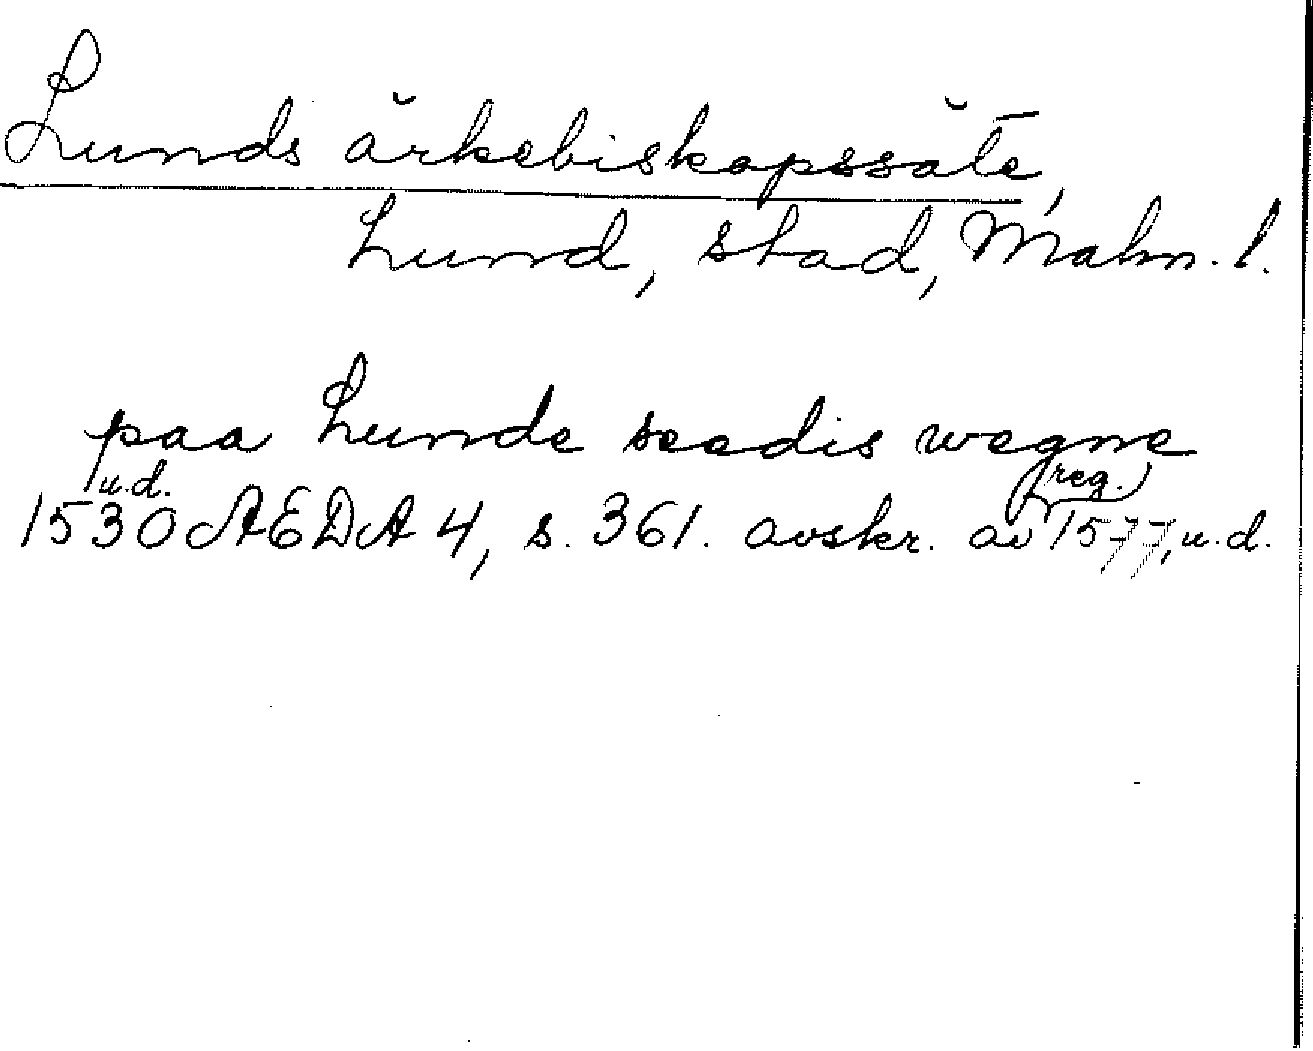 Lunds ärkebiskopssäte,
Lund, stad, Malm. l.
paa Lunde seedis wegne
1530 u.d. AEDA 4, s. 361. avskr. av (reg.) 1577, u.d.